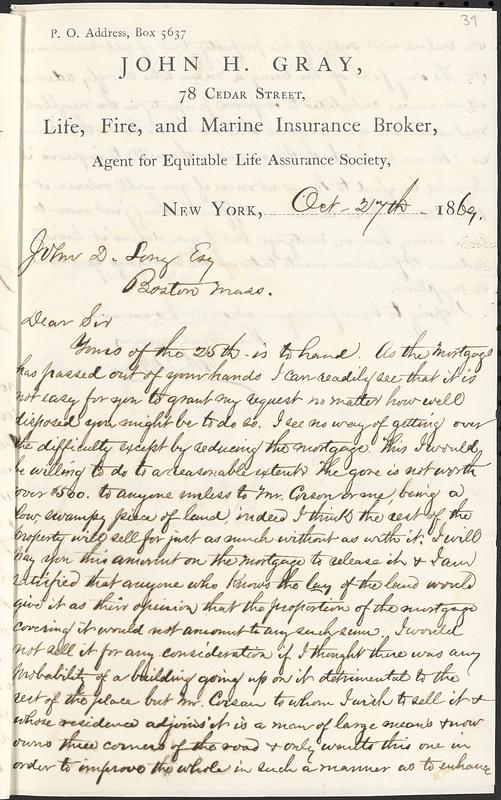 39
P. O. Address, Box 5637
JOHN H. GRAY,
78 CEDAR STREET,
Life, Fire, and Marine Insurance Broker,
Agent for Equitable Life Assurance Society,
NEW YORK, Oct. 27th 1869.
John D. Long Esq
Boston Mass.
Dear Sir
Yours of the 25th is to hand. As the Mortgage
has passed out of your hands I can readily see that it is
not easy for you to grant my request no matter how well
disposed you might be to do so. I see no way of getting over
the difficulty except by reducing the mortgage. This I would
be willing to do to a reasonable extent. The gore is not worth
over $500. to anyone unless to Mr. Corson or me being a
low, swampy piece of land indeed I think the rest of the
property will sell for just as much without as with it. I will
pay you this amount on the mortgage to release it & I am
satisfied that anyone who knows the lay of the land would
give it as their opinion that the proportion of the mortgage
covering it would not amount to any such sum. I would
not sell it for any consideration if I thought there was any
probability of a building going up on it detrimental to the
rest of the place but Mr. Corsan to whom I wish to sell it &
whose residence adjoins it is a man of large means & now
owns three corners of the road & only wants this one in
order to improve the whole in such a manner as to enhance